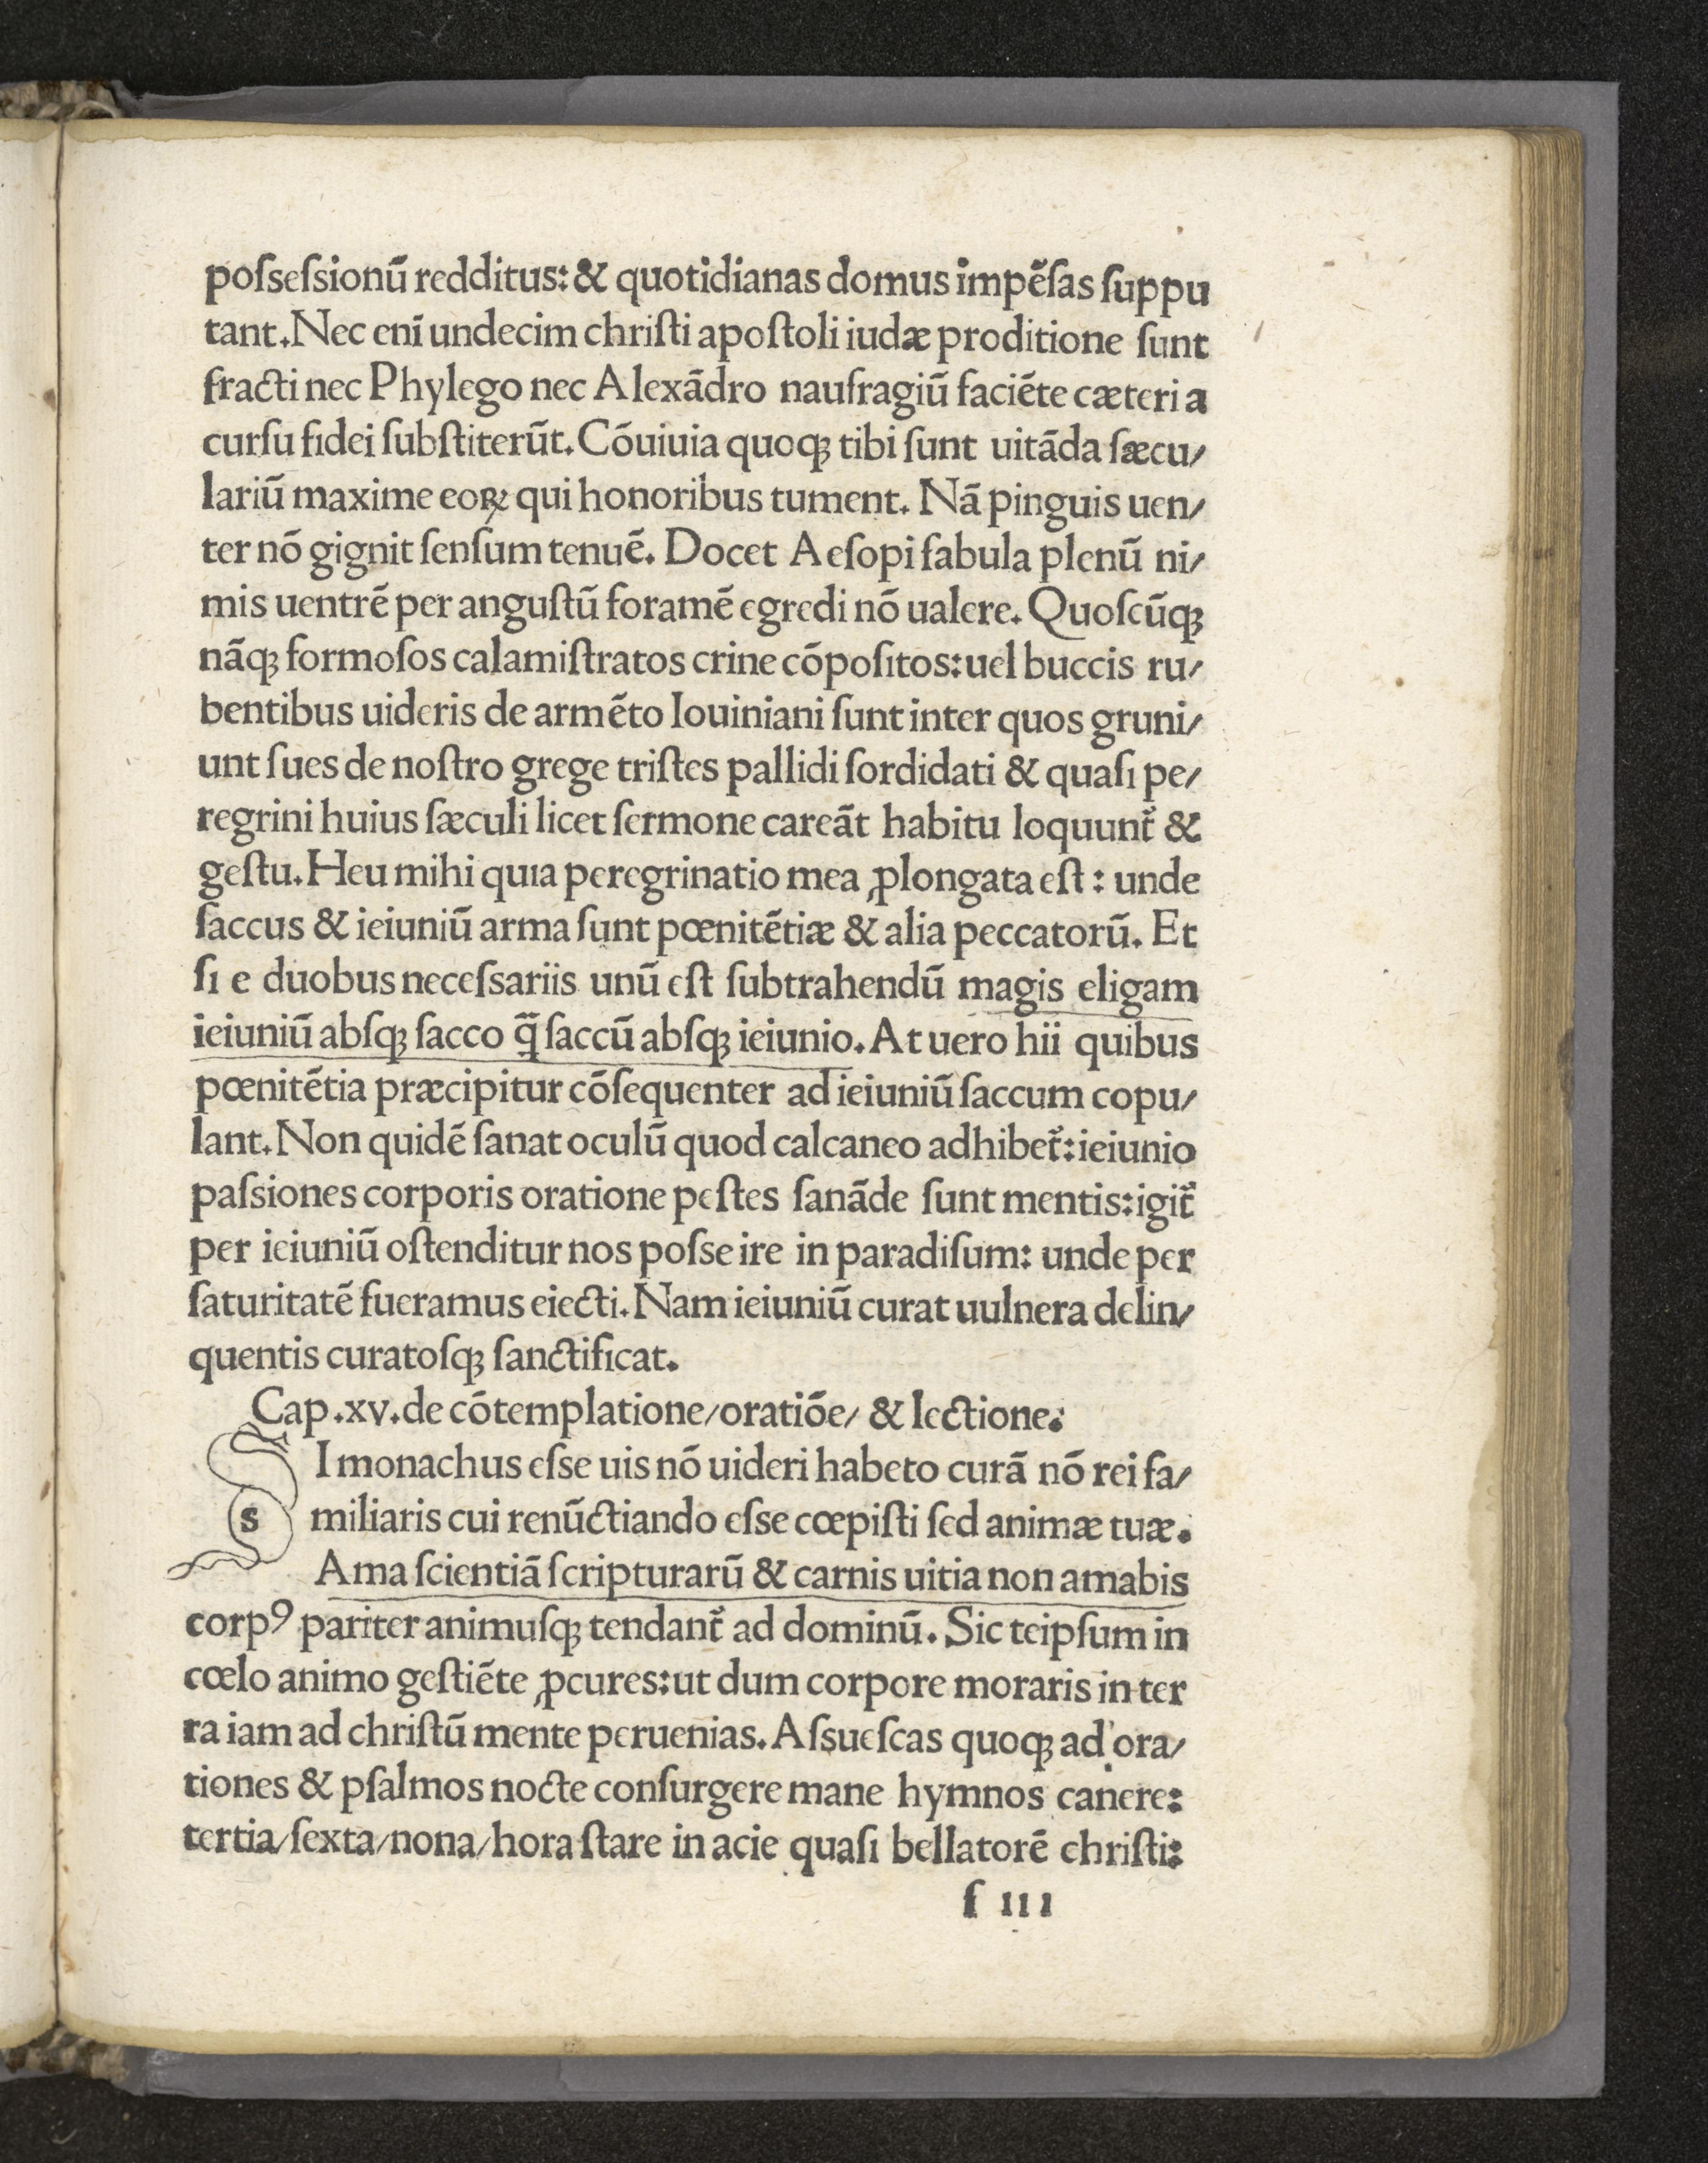 poſsesſsionū redditus: & quotidianas domus impēſas ſuppu
tant. Nec enī undecim chriſti apoſtoli iudæ proditione ſunt
fracti nec Phylego nec Alexādro naufragiū faciēte cæteri a
curſu fidei ſubſtiterūt. Cōuiuia quoqꝫ tibi ſunt uitāda ſæcu/
lariū maxime eoꝝ qui honoribus tument. Nā pinguis uen/
ter nō gignit ſenſum tenuē. Docet Aeſopi fabula plenū ni/
mis uentrē per anguſtū foramē egredi nō ualere. Quoſcūqꝫ
nāqꝫ formoſos calamiſtratos crine cōpoſitos: uel buccis ru/
bentibus uideris de armēto Iouiniani ſunt inter quos gruni/
unt ſues de noſtro grege triſtes pallidi ſordidati & quaſi pe/
regrini huius ſæculi licet ſermone careāt habitu loquunt̃ &
geſtu. Heu mihi quia peregrinatio mea ꝓlongata eſt: unde
ſaccus & ieiuniū arma ſunt pœnitētiæ & alia peccatorū. Et
ſi e duobus neceſsariis unū eſt ſubtrahendū magis eligam
ieiuniū abſqꝫ ſacco q̄̃ ſaccū abſqꝫ ieiunio. At uero hii quibus
pœnitētia præcipitur cōſequenter ad ieiuniū ſaccum copu/
lant. Non quidē ſanat oculū quod calcaneo adhibet̃: ieiunio
paſsiones corporis oratione peſtes ſanāde ſunt mentis: igit̃
per ieiuniū oſtenditur nos poſse ire in paradiſum: unde per
ſaturitatē fueramus eiecti. Nam ieiuniū curat uulnera delin/
quentis curatoſqꝫ ſanctificat.
Cap .xv. de cōtemplatione/ oratiōe/ & lectione.
s I monachus eſse uis nō uideri habeto curā nō rei fa/
miliaris cui renūctiando eſse cœpiſti ſed animæ tuæ.
Ama ſcientiā ſcripturarū & carnis uitia non amabis
corpꝰ pariter animuſqꝫ tendant̃ ad dominū. Sic teipſum in
cœlo animo geſtiēte ꝓcures: ut dum corpore moraris in ter
ra iam ad chriſtū mente peruenias. Aſsueſcas quoqꝫ ad ora/
tiones & pſalmos nocte conſurgere mane hymnos canere:
tertia/ ſexta/ nona/ hora ſtare in acie quaſi bellatorē chriſti:
f iii